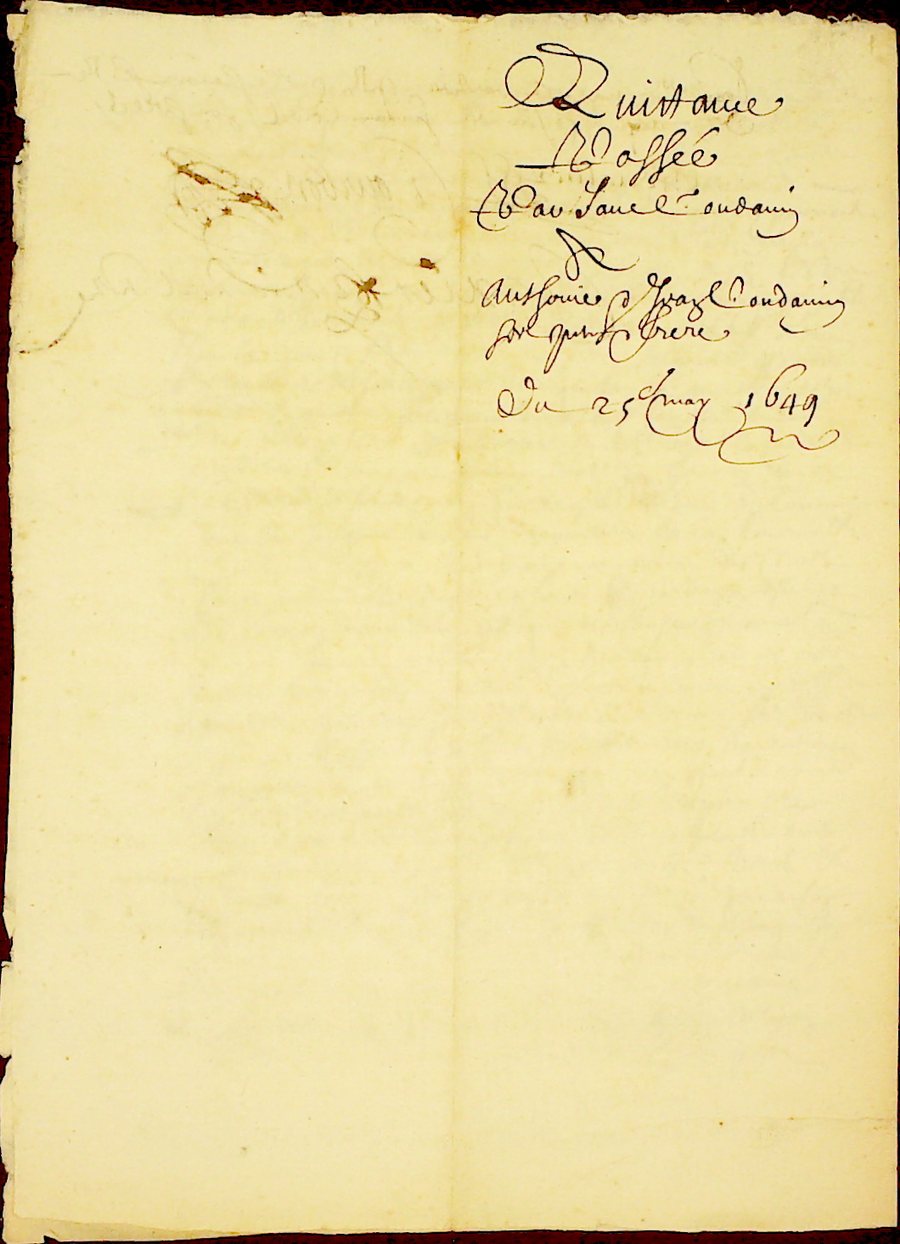 Quittance
Passée
Par Janel Condamin
A
Anthonie & Izrael Condamin
son frere
Du 25e may 1649